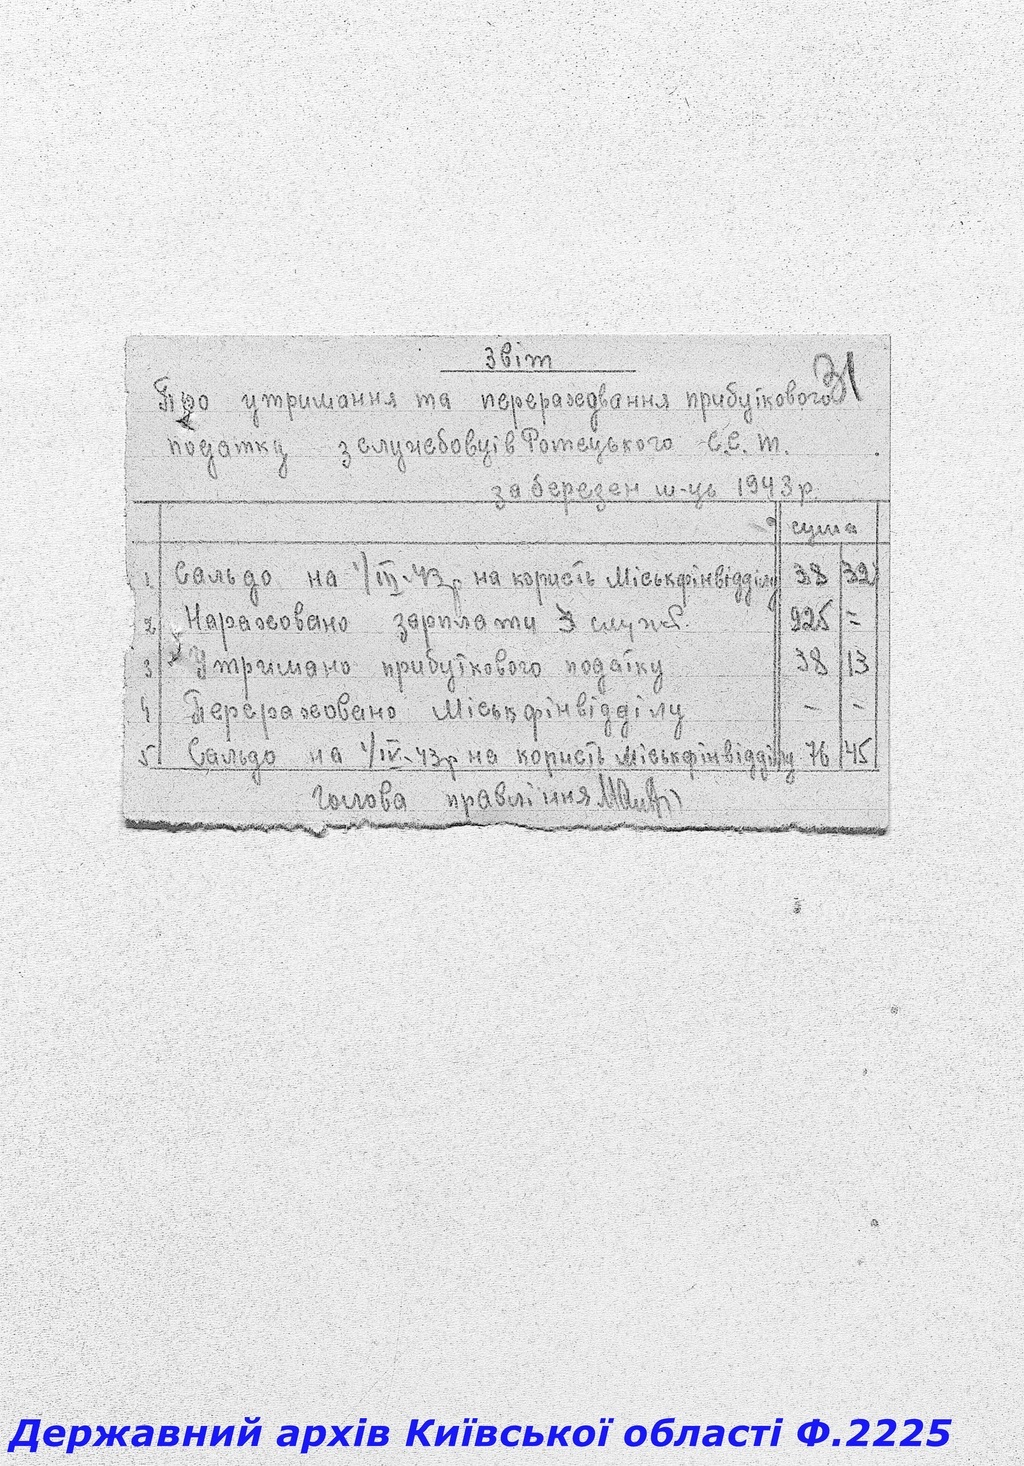 Звіт
31
Про утримання та перераховання прибуткового
податку з службовців Ротецького С.С.Т.
за березен м-ць 1943 р.
сума
1 Сальдо на 1/III-43р на користь Міськфінвідділу 38 32
2 Нараховано зарплати 3 служб. 925 =
3 Утримано прибуткового податку 38 13
4 Перераховано Міськфінвідділу - -
5 Сальдо на 1/IV-43р на користь Міськфінвідділу 76 45
Голова правління
Державний архів Київської області Ф.2225